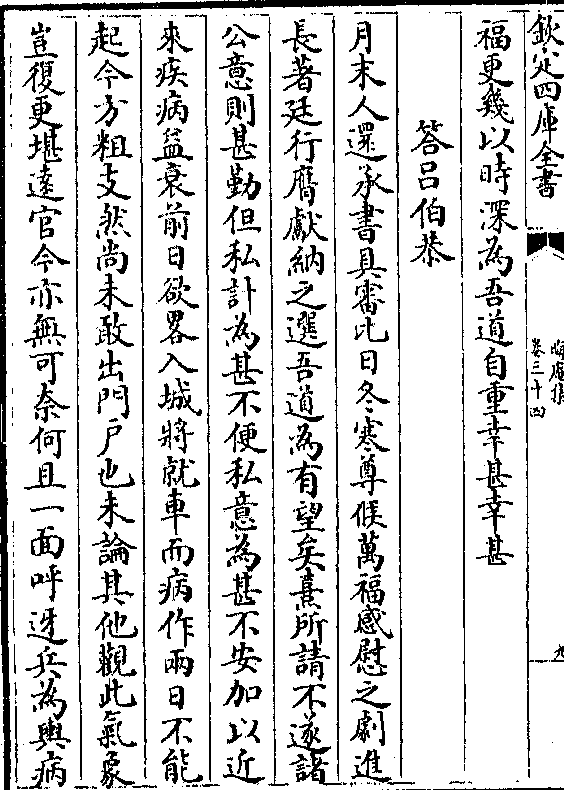 欽定四庫全書
晦庵集
卷三十四
九
福更幾以時深為吾道自重幸甚幸甚
答吕伯恭
月末人還承書具審比日冬寒尊候萬福感慰之劇進
長著廷行膺獻納之選吾道為有望矣熹所請不遂諸
公意則甚勤但私計為甚不便私意為甚不安加以近
來疾病益衰前日欲畧入城將就車而病作兩日不能
起今方粗支然尚未敢出門戶也未論其他觀此氣象
豈復更堪遠官今亦無可奈何且一面呼迓兵為輿病